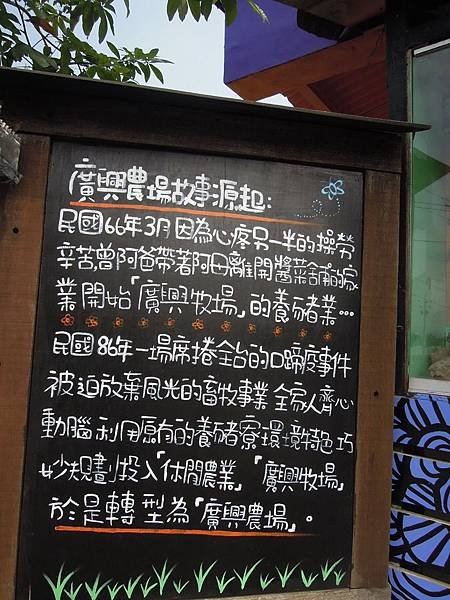 廣興農場故事源起：
民國66年3月因為心疼另一半的操勞
辛苦,曾阿爸帶著阿母離開醬菜舖的家
業開始「廣興牧場」的養豬業…
民國86年一場席捲全台的口蹄疫事件
被迫放棄風光的畜牧事業 全家人齊心
動腦 利用原有的養豬寮環境特色 巧
妙規劃投入「休閒農業」「廣興牧場」
於是轉型為「廣興農場」。